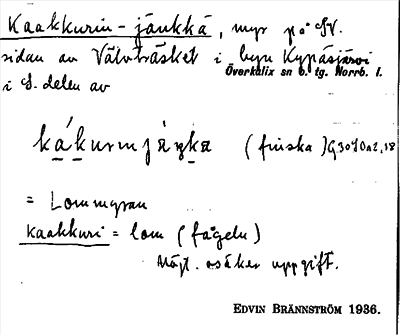 Kaakkurin-jänkkä, myr på SV.
sidan av Vätvträsket i byn Kypäsjärvi
Överkalix sn o. tg. Norrb. l.
i S. delen av
kákurınjäŋka (finska)
= Lommyran
kaakkuri = lom (fågeln)
Något osäker uppgift.
EDVIN BRÄNNSTRÖM 1936.